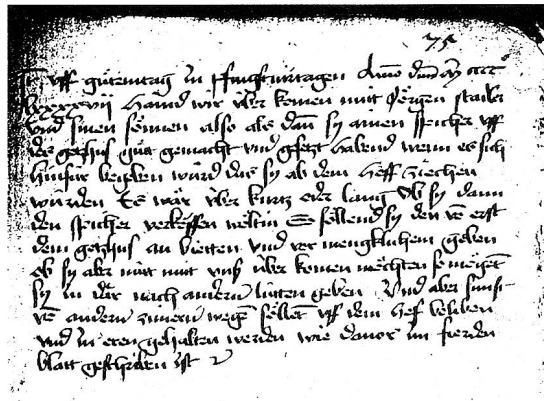 75
Uff gütemtag in pfingstvirtagen Anno dm M cccc
lxxxxvij Hand wir über komen mitt Jörgen
und sinen sönnen also als dan sy ainen speicher uff
des gotzhus gůt gemacht und gesetzt habend wenn es sich
hinfür begeben würd das sy ab dem hoff ziechen
würden Es wär über kurtz oder lang Ob sy dann
den speicher verköffen wöltin So söllend sy den von erst
dem gotzhus an bietten und vor mengklichem geben
ob sy aber nütt mitt uns über komen möchten so mögent
sy in dar nach andern lütten geben Und aber sunst
von andern wegen söller uff dem hof beliben
und in eren gehalten werden wie davor im fierden
blatt geschriben ist